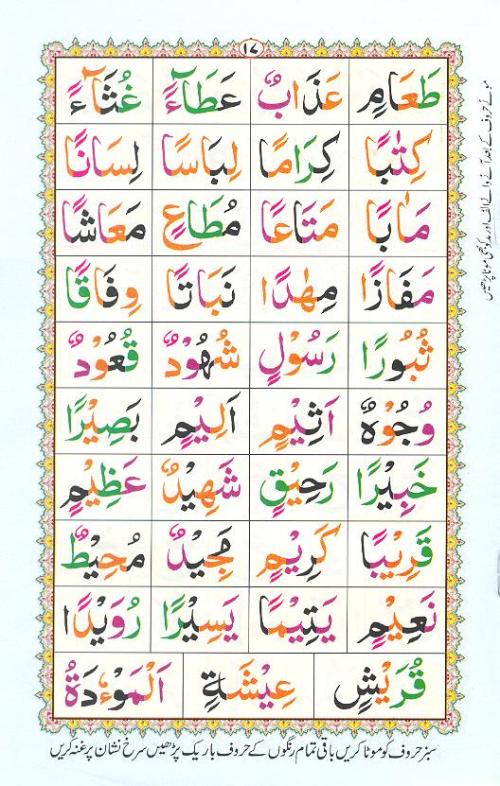 ١٧
طَعَامٍ عَذَابٌ عَطَآءً غُثَآءً
كِتٰبًا كِرَامًا لِبَاسًا لِسَانًا
مَاٰبًا مَتَاعًا مُطَاعٍ مَعَاشًا
مَفَازًا مِهٰدًا نَبَاتًا وِفَاقًا
ثُبُورًا رَسُوْلٍ شُهُوْدٌ قُعُوْدٌ
وُجُوْهٌ اَثِيْمٍ اَلِيْمٍ بَصِيْرًا
خَبِيْرًا رَحِيْقٍ شَهِيْدٌ عَظِيْمٍ
قَرِيْبًا كَرِيْمٍ مَجِيْدٌ مُحِيْطٌ
نَعِيْمٍ يَتِيْمًا يَسِيْرًا رُوَيْدًا
قُرَيْشٍ عِيْشَةٍ اَلْمَوْءٗدَةُ
سبز حروف کو موٹا کریں باقی تمام رنگوں کے حروف باریک پڑھیں سرخ نشان پر غنہ کریں
موٹے حروف کے بعد آنے والے الف اور مد کو بھی موٹا پڑھیں